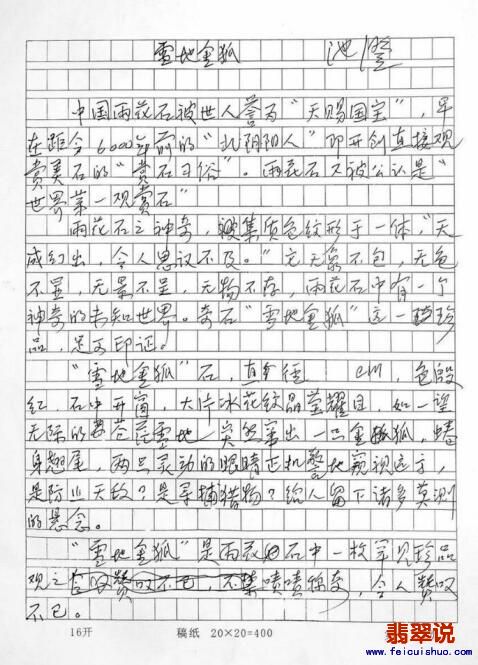 雪地金狐 池澄
中国雨花石被世人誉为“天赐国宝”，早
在距今6000年前的“北阴阳人”即开创直接观
赏美石的“赏石习俗”。雨花石又被公认是“
世界第一观赏石”
雨花石之神奇，被集质色纹形于一体，“天
成幻出，令人思议不及。”它无象不包，无色
不显，无景不呈，无物不存，雨花石中有一个
神奇的未知世界。奇石“雪地金狐”这一珍
品，足可印证。
“雪地金狐”石，直径 cm，色殷
红，石中开窗，大片冰花纹晶莹耀目，如一望
无际的苍茫雪地，突然窜出一只金狐，蜷
身翘尾，两只灵动的眼睛正机警地窥视远方，
是防止天敌？是寻捕猎物？给人留下诸多莫测
的悬念。
“雪地金狐”是雨花石中一枚罕见珍品
观之啧啧称奇，令人赞叹
不已。
16开 稿纸 20×20=400
翡翠说
www.feicuishuo.com